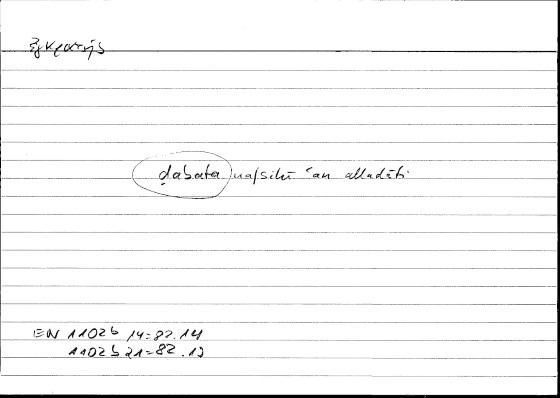 ἐγκρατής
ḍabaṭa nafsihī ʿan alladāti
EN 1102b 14=82.14
1102b 21=82.19